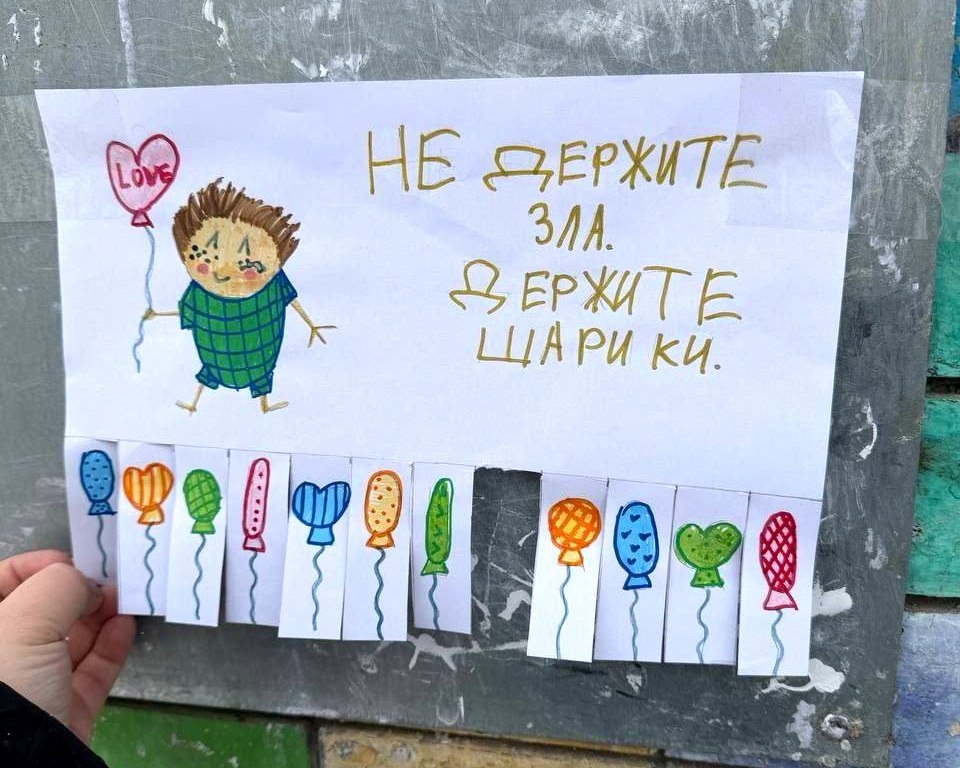 LOVE
НЕ ДЕРЖИТЕ
ЗЛА.
ДЕРЖИТЕ
ШАРИКИ.